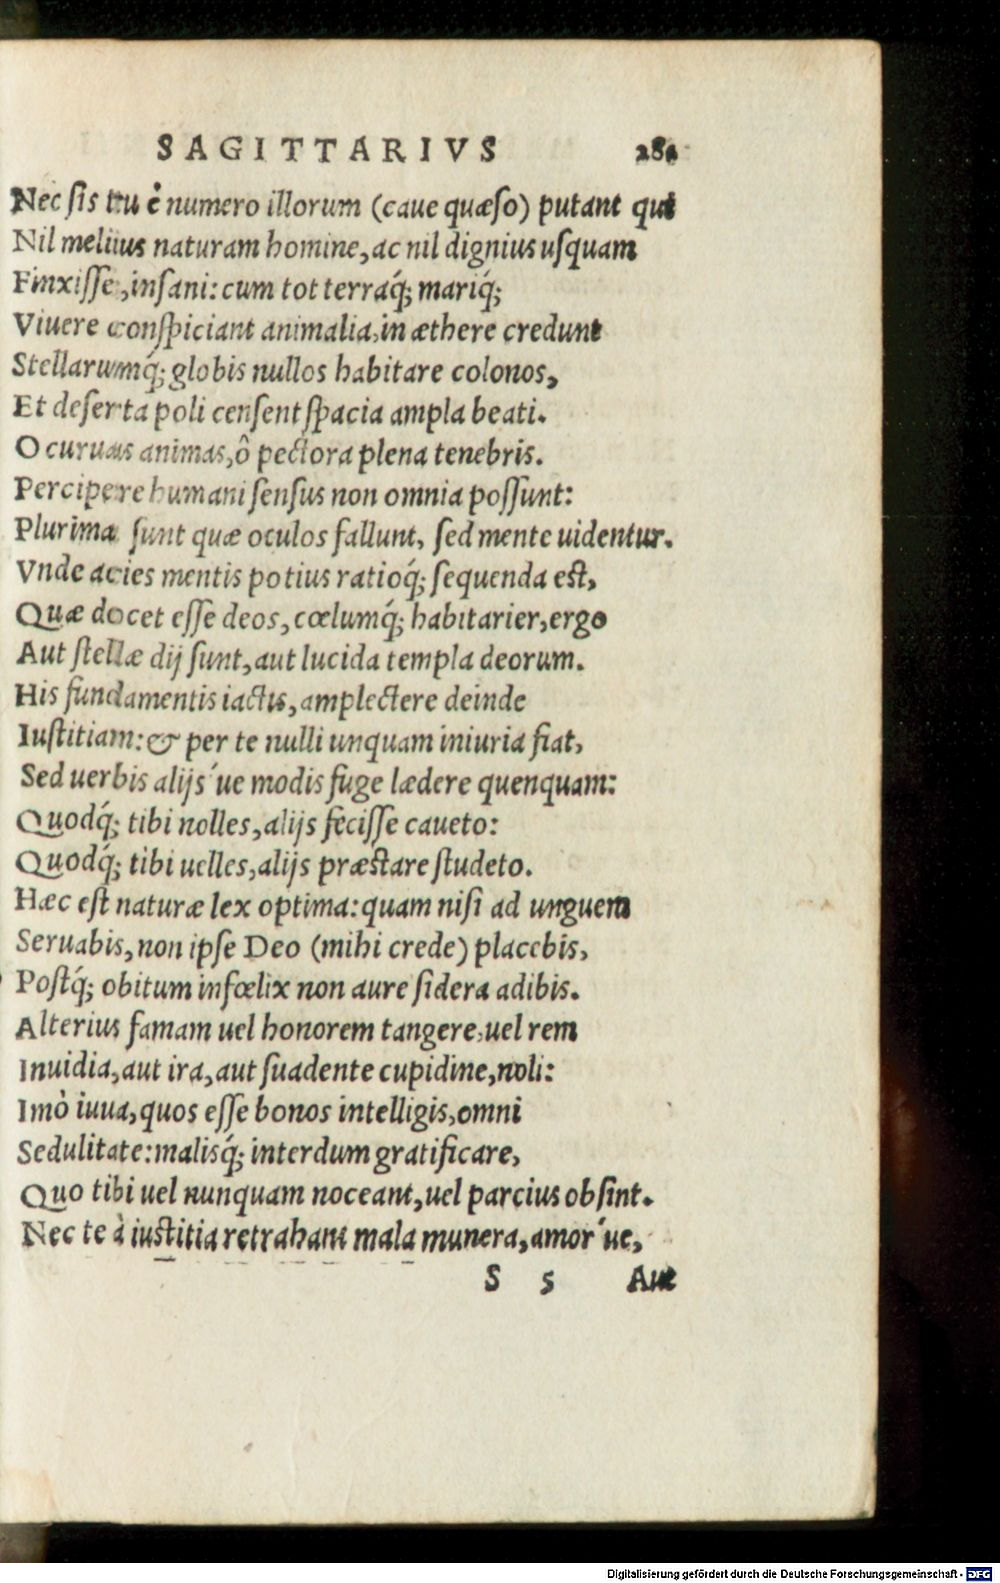 SAGITTARIVS 281
Nec ſis tu è numero illorum (caue quæſo) putant qui
Nil melius naturam homine, ac nil dignius uſquam
Finxiſſe, inſani: cum tot terraq́; mariq́;
Viuere conſpiciant animalia, in æthere credunt
Stellarumq́; globis nullos habitare colonos,
Et deſerta poli cenſent ſpacia ampla beati.
O curuas animas, ô pectora plena tenebris.
Percipere humani ſenſus non omnia poſſunt:
Plurima ſunt quæ oculos fallunt, ſed mente uidentur.
Vnde acies mentis potius ratioq́; ſequenda eſt,
Quæ docet eſſe deos, cœlumq́; habitarier, ergo
Aut ſtellæ dij ſunt, aut lucida templa deorum.
His fundamentis iactis, amplectere deinde
Iuſtitiam: & per te nulli unquam iniuria fiat,
Sed uerbis alijs'ue modis fuge lædere quenquam:
Quodq́; tibi nolles, alijs feciſſe caueto:
Quodq́; tibi uelles, alijs præſtare ſtudeto.
Hæc eſt naturæ lex optima: quam niſi ad unguem
Seruabis, non ipſe Deo (mihi crede) placebis,
Poſtq́; obitum infœlix non aure ſidera adibis.
Alterius famam uel honorem tangere, uel rem
Inuidia, aut ira, aut ſuadente cupidine, noli:
Imò iuua, quos eſſe bonos intelligis, omni
Sedulitate: malisq́; interdum gratificare,
Quo tibi uel nunquam noceant, uel parcius obſint.
Nec te à iuſtitia retrahant mala munera, amor'ue,
S 5 Aut
Digitalisierung gefördert durch die Deutsche Forschungsgemeinschaft - DFG